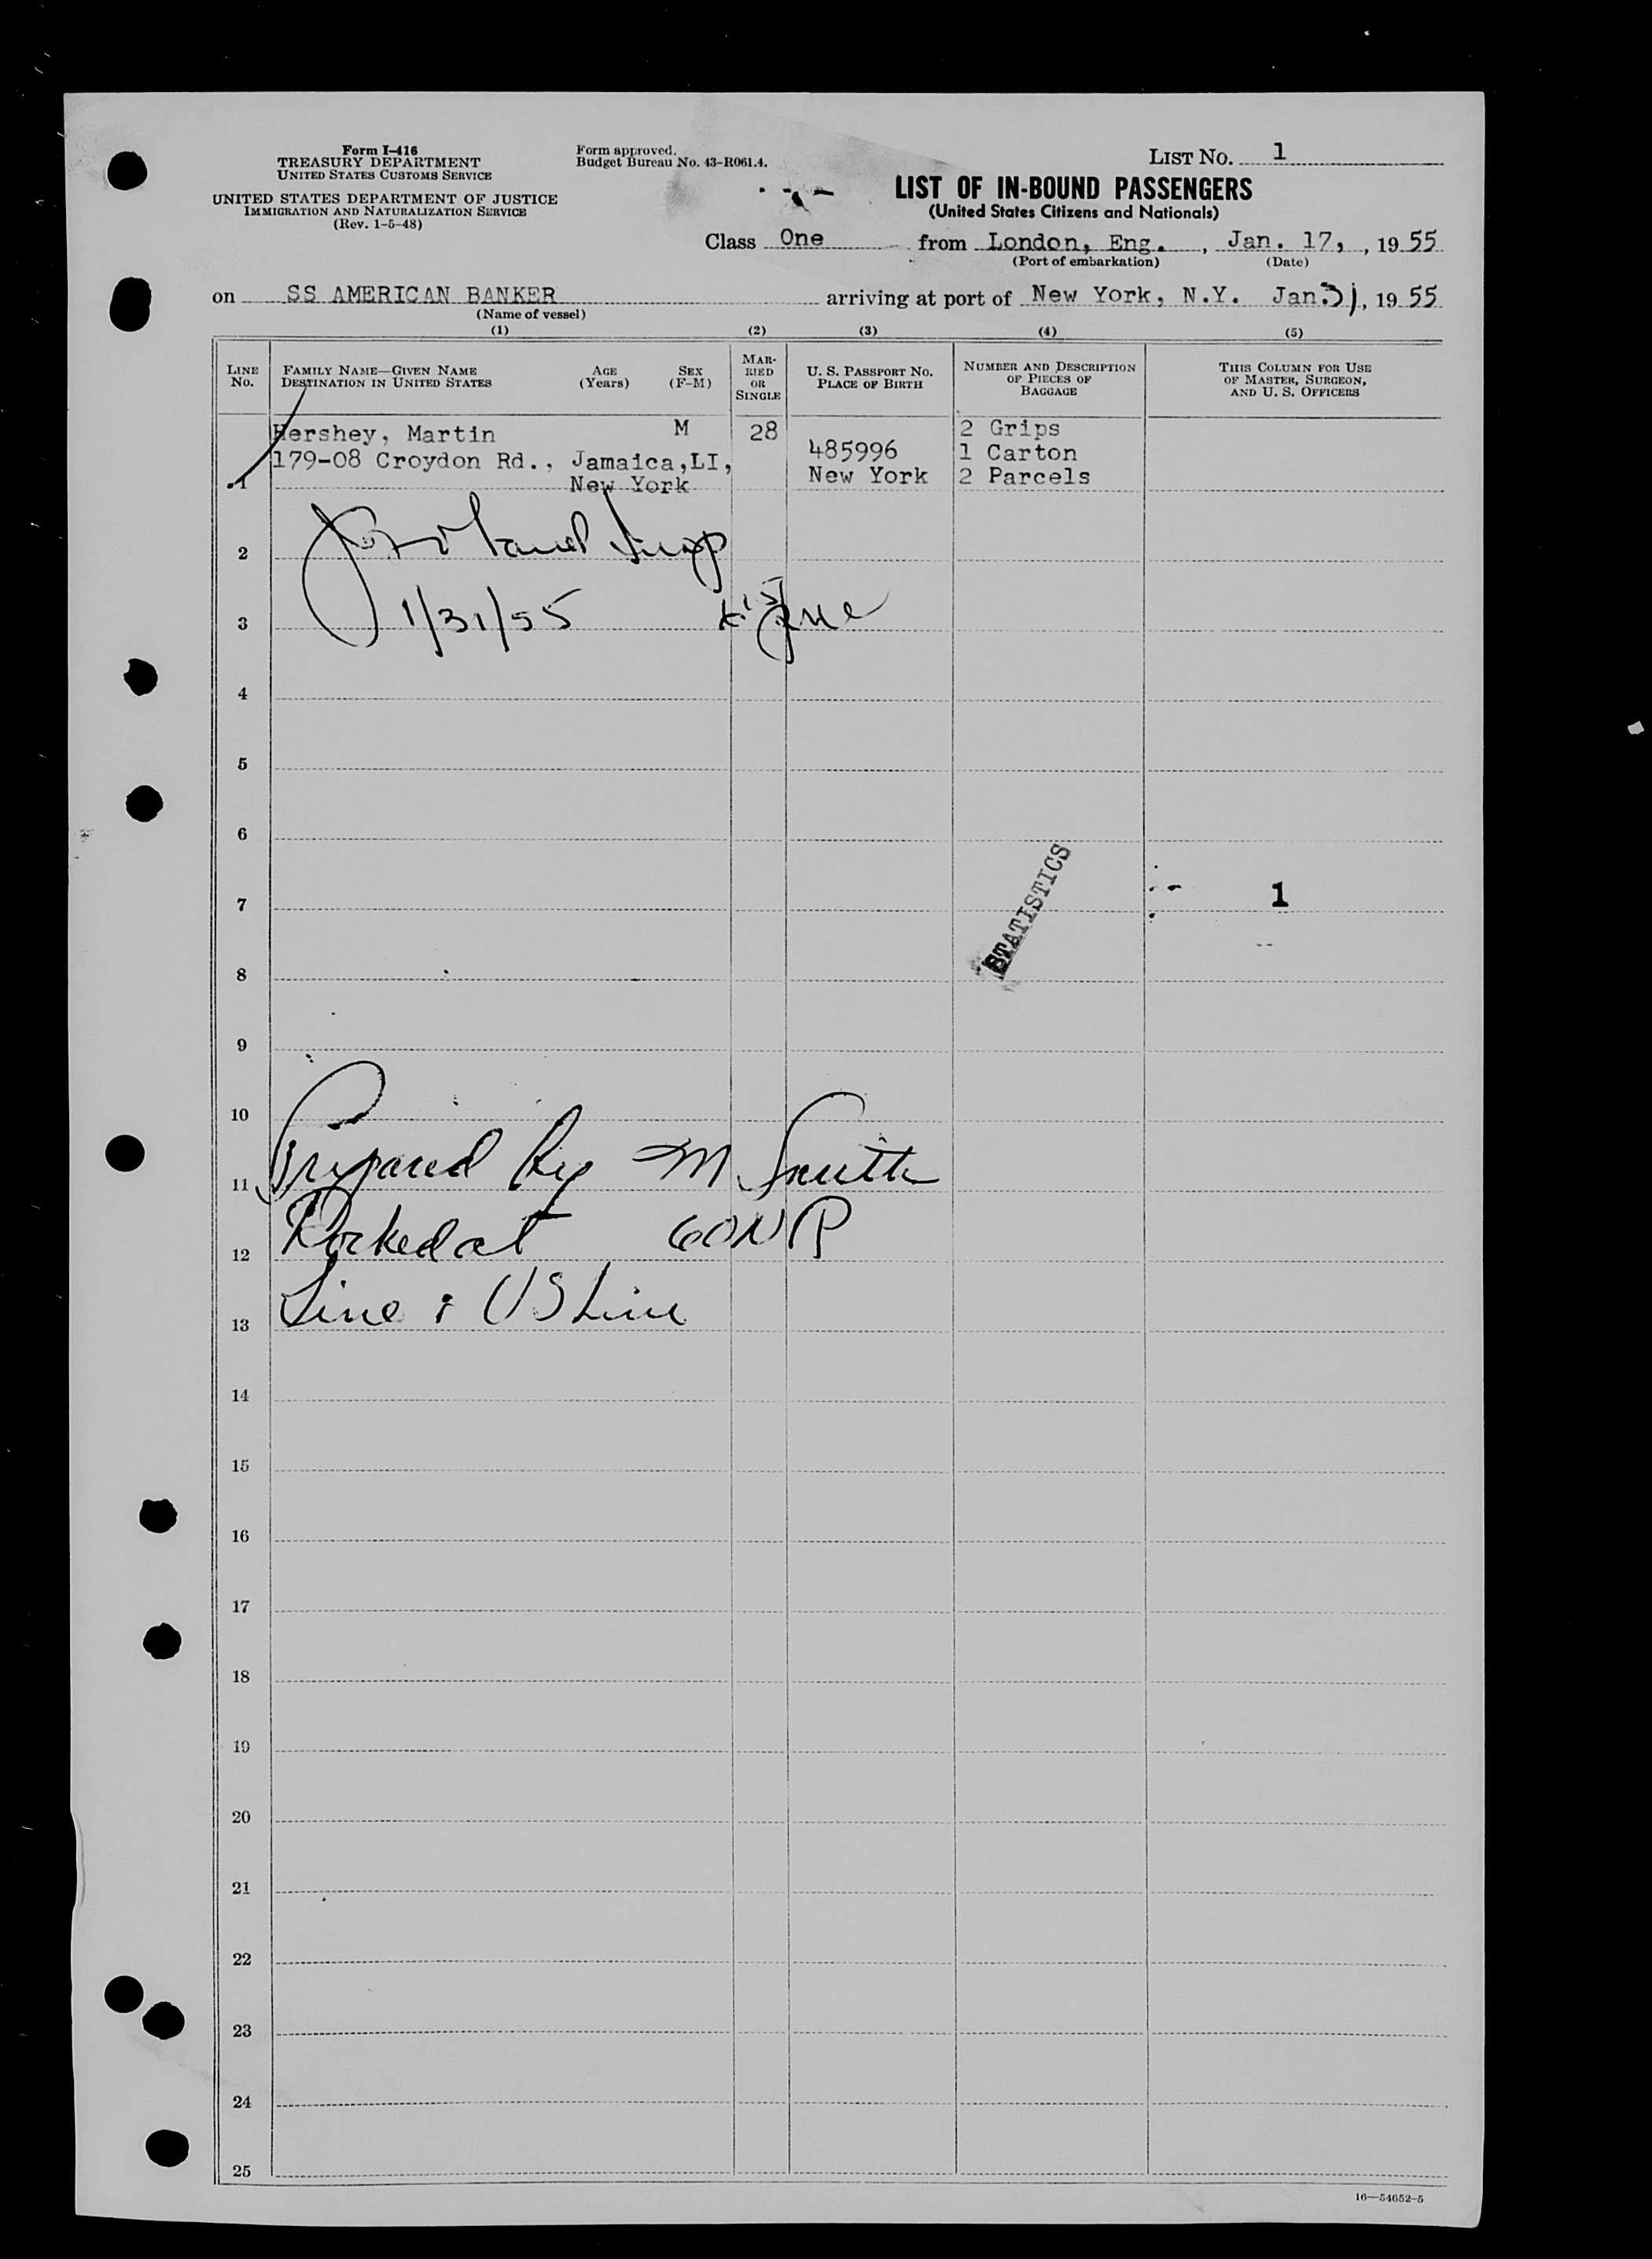 Form I-416
TREASURY DEPARTMENT
UNITED STATES CUSTOMS SERVICE
UNITED STATES DEPARTMENT OF JUSTICE
IMMIGRATION AND NATURALIZATION SERVICE
(Rev. 1-5-48)
Form approved.
Budget Bureau No. 43-R061.4.
LIST NO. 1
LIST OF IN-BOUND PASSENGERS
(United States Citizens and Nationals)
Class One from London, Eng., Jan. 17, , 1955
(Port of embarkation) (Date)
on SS AMERICAN BANKER arriving at port of New York, N.Y. Jan. 31, 1955
(Name of vessel)
(1) (2) (3) (4) (5)
LINE NO.
FAMILY NAME—GIVEN NAME
DESTINATION IN UNITED STATES
AGE (Years)
SEX (F-M)
MARRIED OR SINGLE
U. S. PASSPORT NO.
PLACE OF BIRTH
NUMBER AND DESCRIPTION OF PIECES OF BAGGAGE
THIS COLUMN FOR USE OF MASTER, SURGEON, AND U. S. OFFICERS
Hershey, Martin M 28 2 Grips
179-08 Croydon Rd., Jamaica,LI, 485996 1 Carton
1 New York New York 2 Parcels
2
3 1/31/55
4
5
6
STATISTICS
7 1
8
9
10
11 Prepared by M Smith
12 Docked at 60 NR
13 Line : US Line
14
15
16
17
18
19
20
21
22
23
24
25
16—54652-5